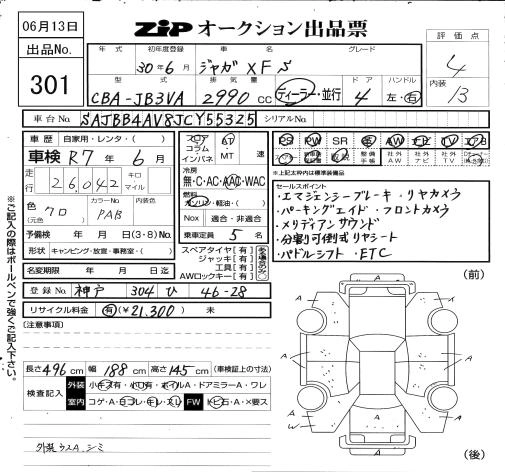 06月13日
ZIP オークション出品票
評価点
4
内装
13
出品No.
301
年式 初年度登録 車名 グレード
30年6月 ジャガ XF S
型式 排気量 ドア ハンドル
CBA-JB3VA 2990 CC ディーラー・並行 4 左・右
車台No. SAJBB4AV8JCY55325 シリアルNo.
車歴 自家用・レンタ・( )
車検 R7年 6月
走行 26,042 キロ マイル
色 クロ (元色) カラーNo. PAB 内装色
予備検 年 月 日(3・8)No.
形状 キャンピング・放置・事務室・( )
名変期限 年 月 日迄
フロア コラム インパネ AT MT 速
冷房 無・C・AC・AAC・WAC
燃料 ガソリン・軽油・( )
Nox 適合・非適合
乗車定員 5 名
スペアタイヤ[有]
ジャッキ[有]
工具[有]
AWロックキー[有]
PS PW SR 革 AW ナビ TV エアB
※上記太枠内は標準装備品
セールスポイント
・エマジェンシーブレーキ ・リヤカメラ
・パーキングエイド ・フロントカメラ
・メリディアンサウンド
・分割可倒式リヤシート
・パドルシフト ・ETC
登録No. 神戸 304 ひ 46-28
リサイクル料金 有(¥21,300) 未
(注意事項)
長さ 496 cm 幅 188 cm 高さ 145 cm (車検証上の寸法)
検査記入 外装 小キズ有・小凹有・ホイルA・ドアミラーA・ワレ
室内 コゲ・A・ヨゴレ・キレ・スレ FW トビ石・A・X要ス
外装 ウスA. シミ
※ご記入の際はボールペンで強くご記入下さい。
(前)
A
A
A
A
A
A
W
A
(後)